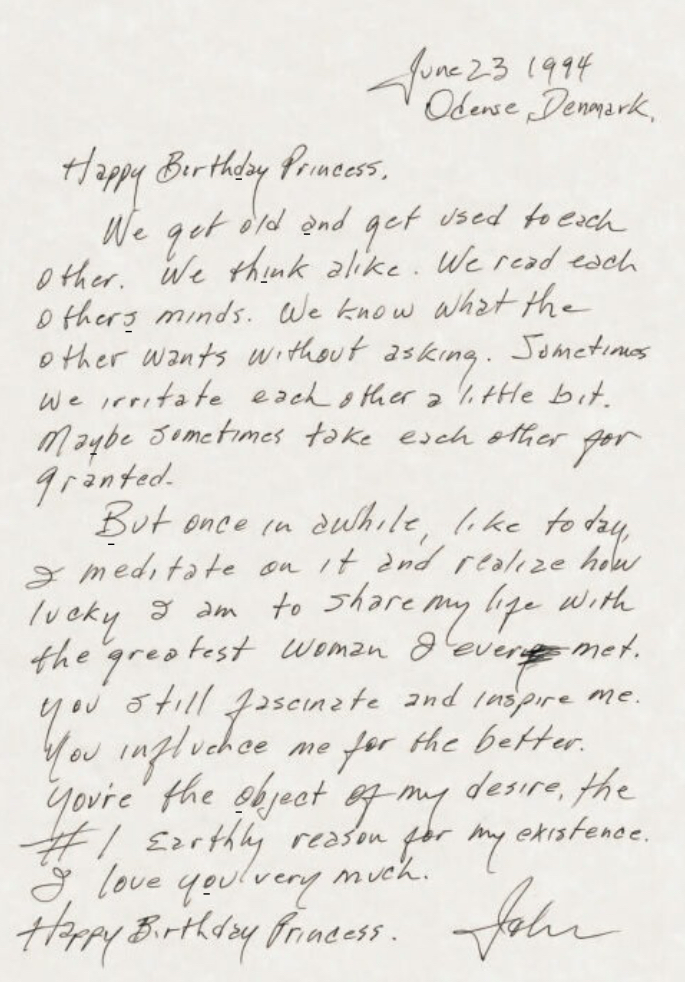 June 23 1994
Odense, Denmark.
Happy Birthday Princess.
We get old and get used to each
other. We think alike. We read each
others minds. We know what the
other wants without asking. Sometimes
we irritate each other a little bit.
Maybe sometimes take each other for
granted.
But once in awhile, like today,
I meditate on it and realize how
lucky I am to share my life with
the greatest woman I ever met.
You still fascinate and inspire me.
You influence me for the better.
You're the object of my desire, the
#1 Earthly reason for my existence.
I love you very much.
Happy Birthday Princess.
John